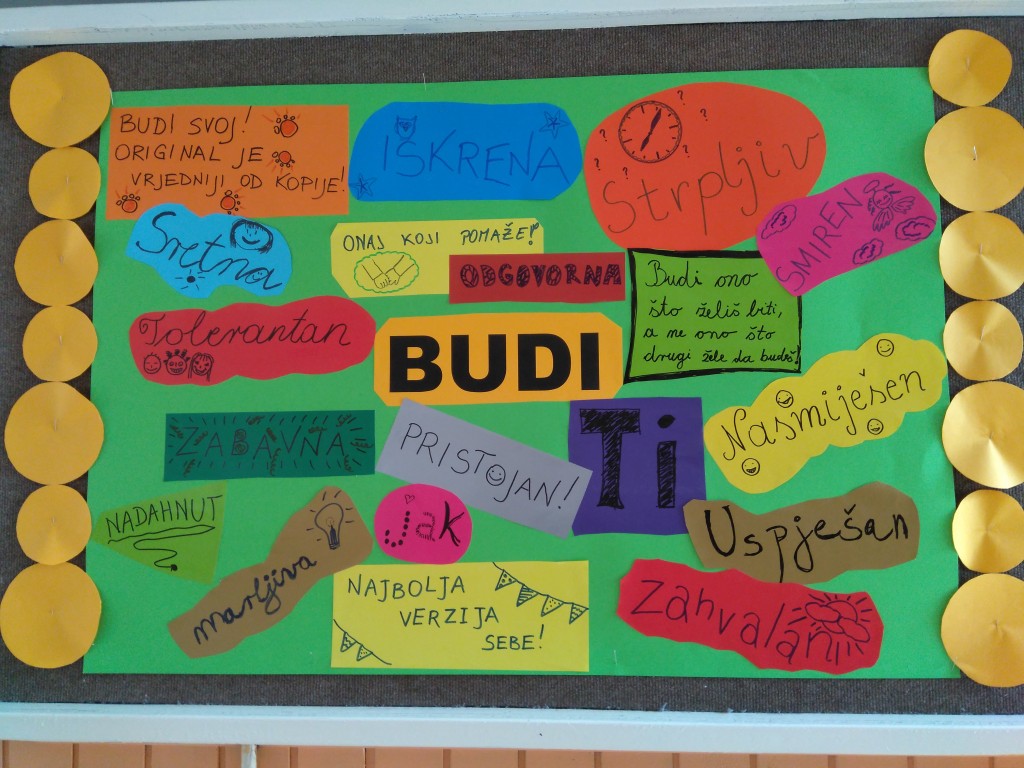 BUDI SVOJ!
ORIGINAL JE
VRJEDNIJI OD KOPIJE!
ISKRENA
Strpljiv
SMIREN
Sretna
ONAJ KOJI POMAŽE!
ODGOVORNA
Budi ono
što želiš biti,
a ne ono što
drugi žele da budeš!
Tolerantan
BUDI
Nasmiješen
ZABAVNA
PRISTOJAN!
Ti
NADAHNUT
marljiva
Jak
Uspješan
NAJBOLJA
VERZIJA
SEBE!
Zahvalan